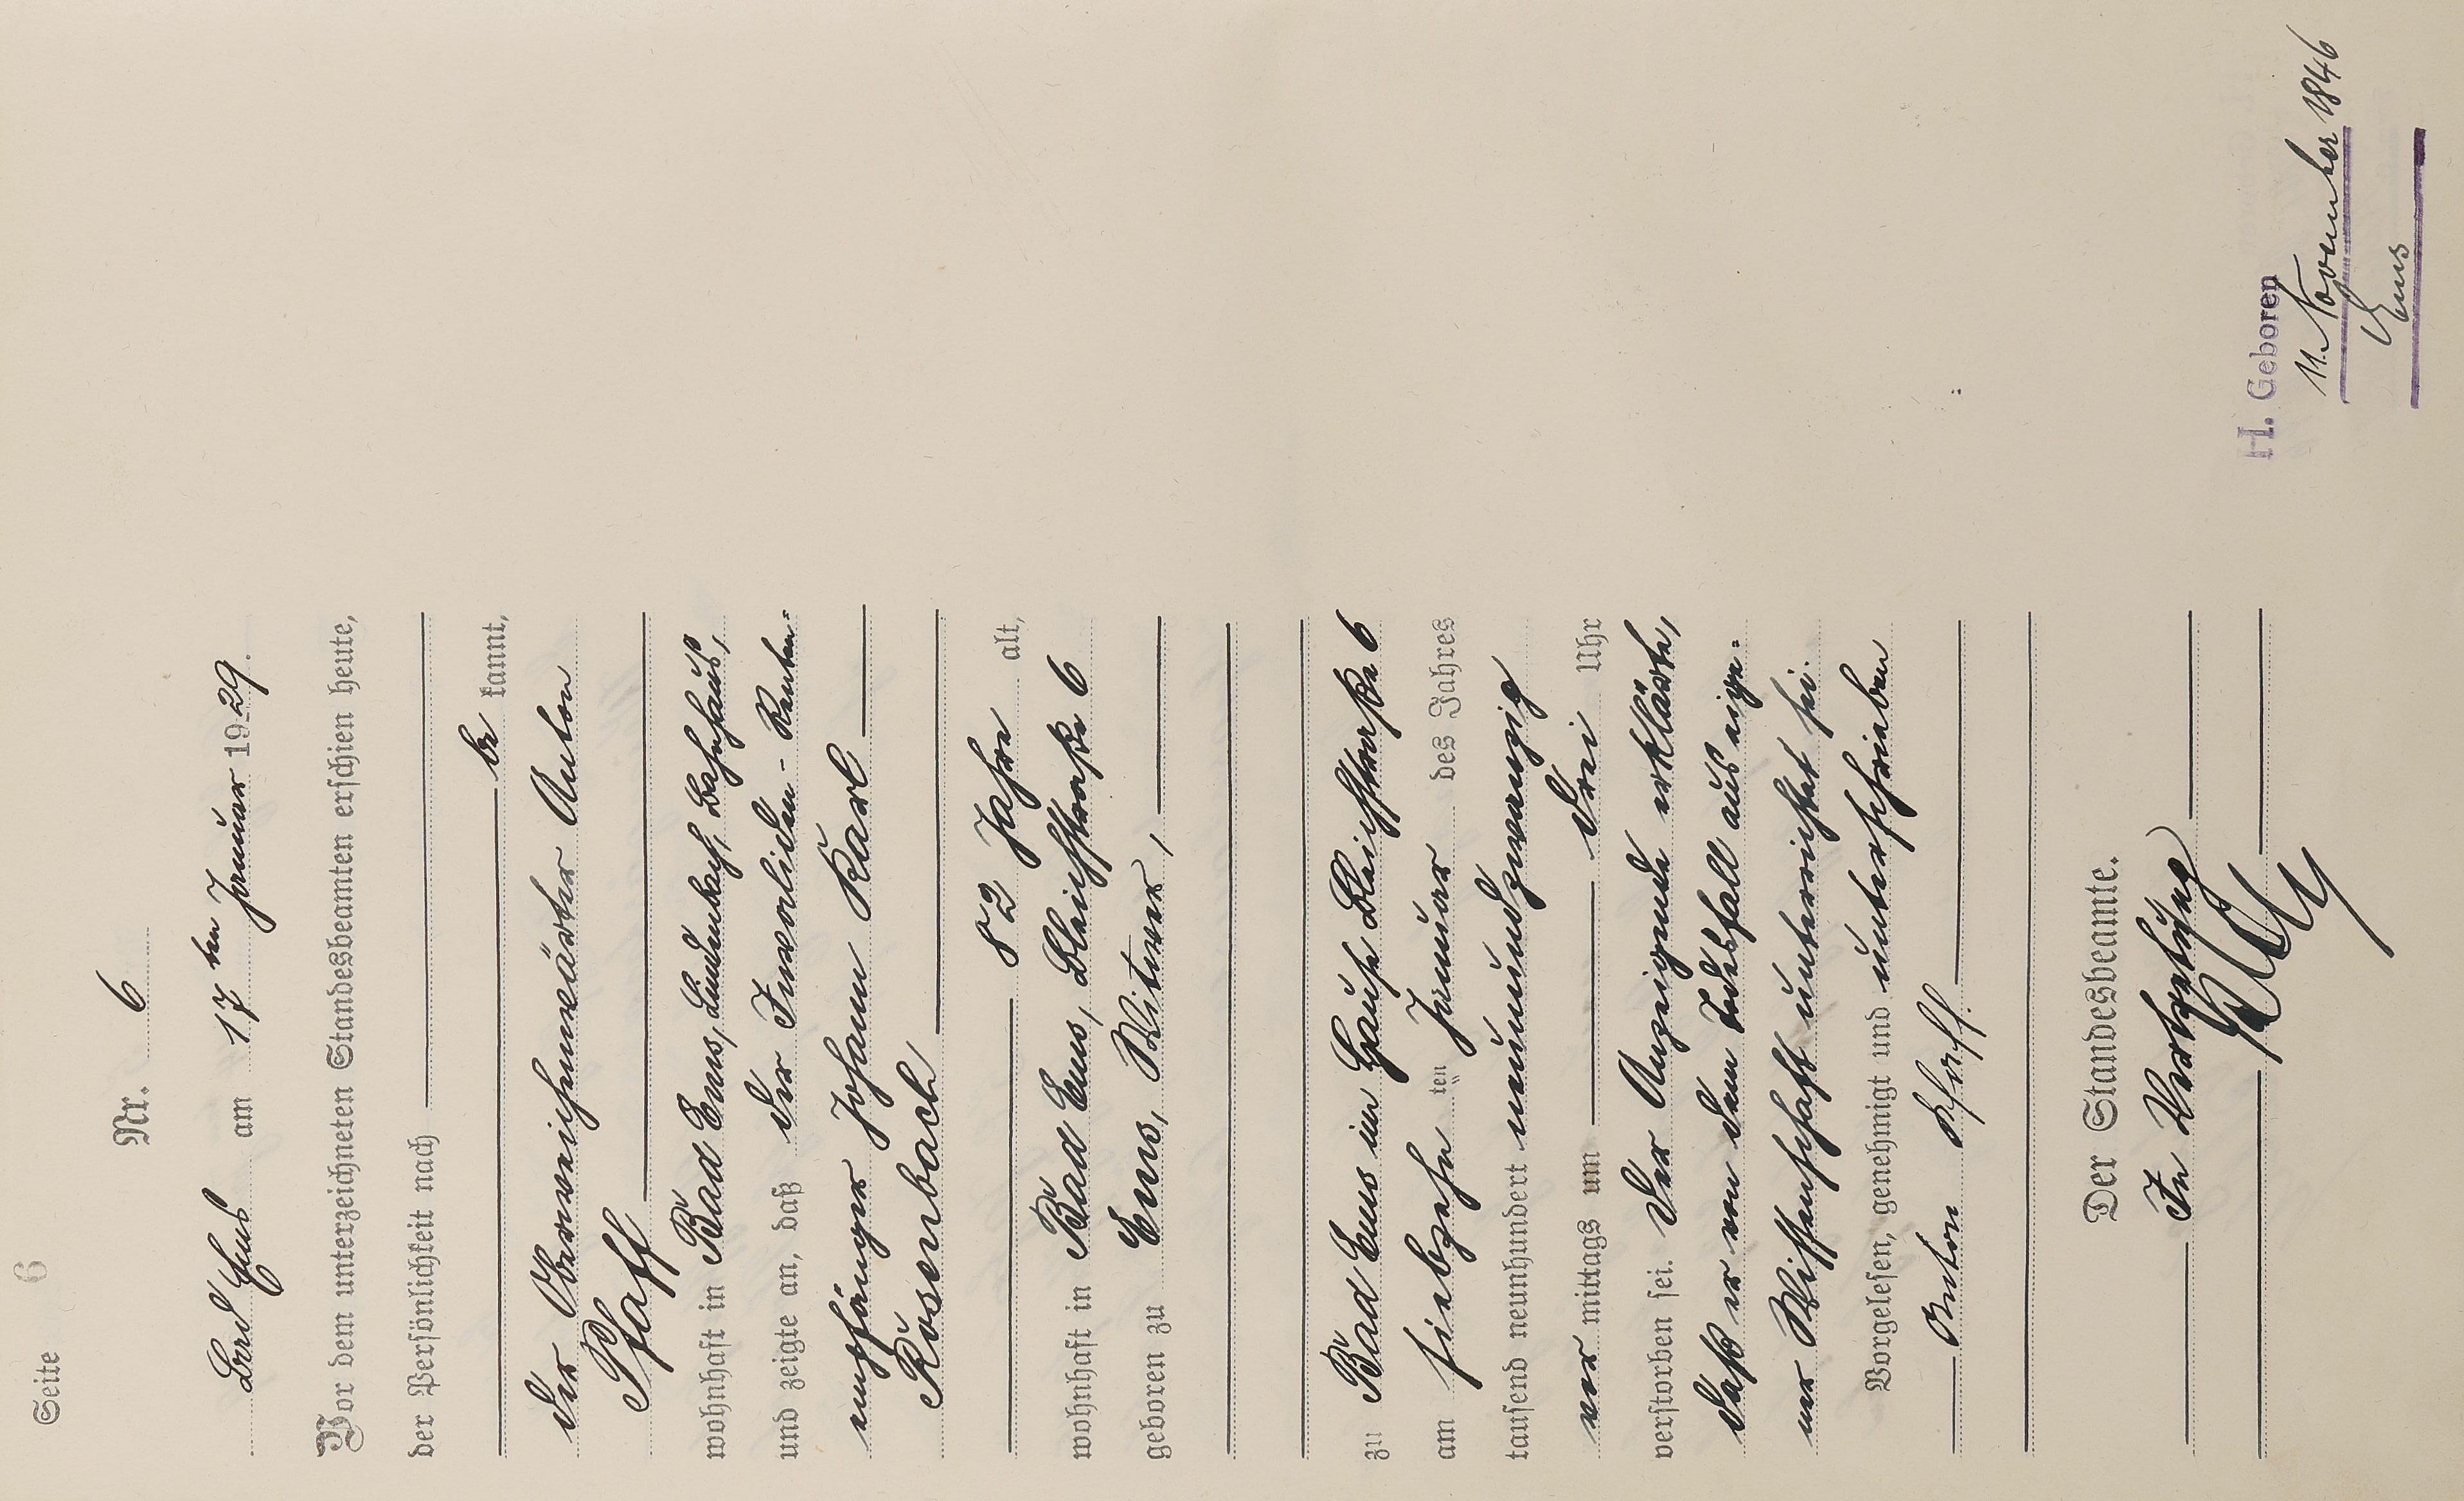 Seite 6
Nr. 6
Bad Ems am 17ten Januar 1929.
Vor dem unterzeichneten Standesbeamten erschien heute,
der Persönlichkeit nach
be kannt,
der Oberweichenwärter Anton
Pfaff
wohnhaft in Bad Ems, Lindenbach, Bahnhaus,
und zeigte an, daß der Invaliden-Renten-
empfänger Johann Karl
Rosenbach
82 Jahre alt,
wohnhaft in Bad Ems, Bleichstraße 6
geboren zu Ems, Witwer,
zu Bad Ems im Hause Bleichstraße 6
am siebzehn ten Januar des Jahres
tausend neunhundert neunundzwanzig
vor mittags um drei Uhr
verstorben sei. Der Anzeigende erklärte,
daß er von dem Todesfall aus eige-
ner Wissenschaft unterrichtet sei.
Vorgelesen, genehmigt und unterschrieben
Anton Pfaff.
Der Standesbeamte.
In Vertretung
H. Geboren
11. November 1846
Ems